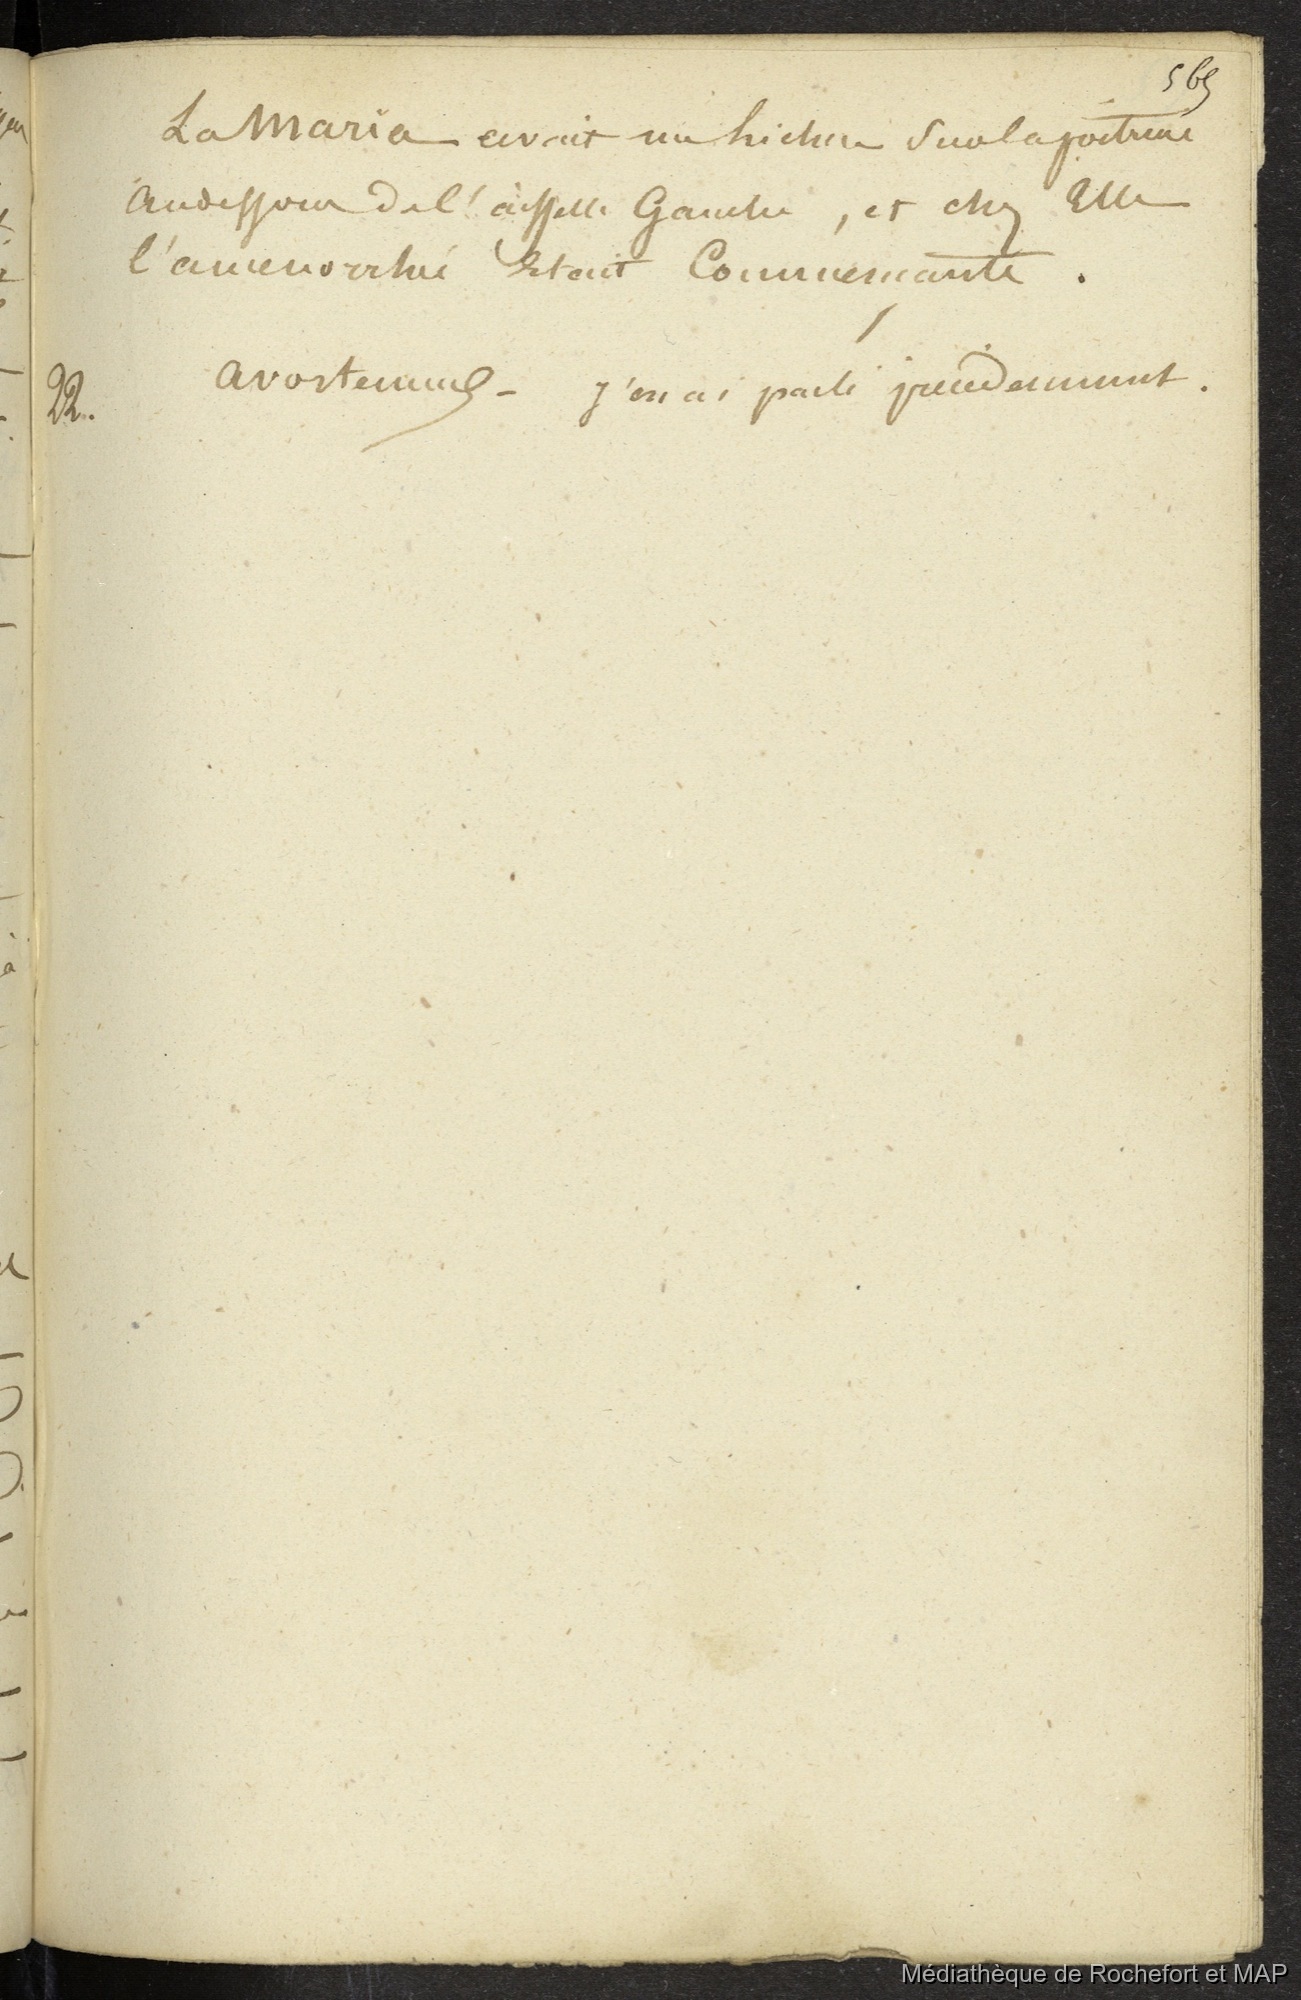 565
La Maria avait un lichen sur la poitrine
audessous de l'aisselle Gauche, et chez Elle
l'amenorrhé Etait Commencante.
22. avortement - j'en ai parlé précédemment.
Médiathèque de Rochefort et MAP